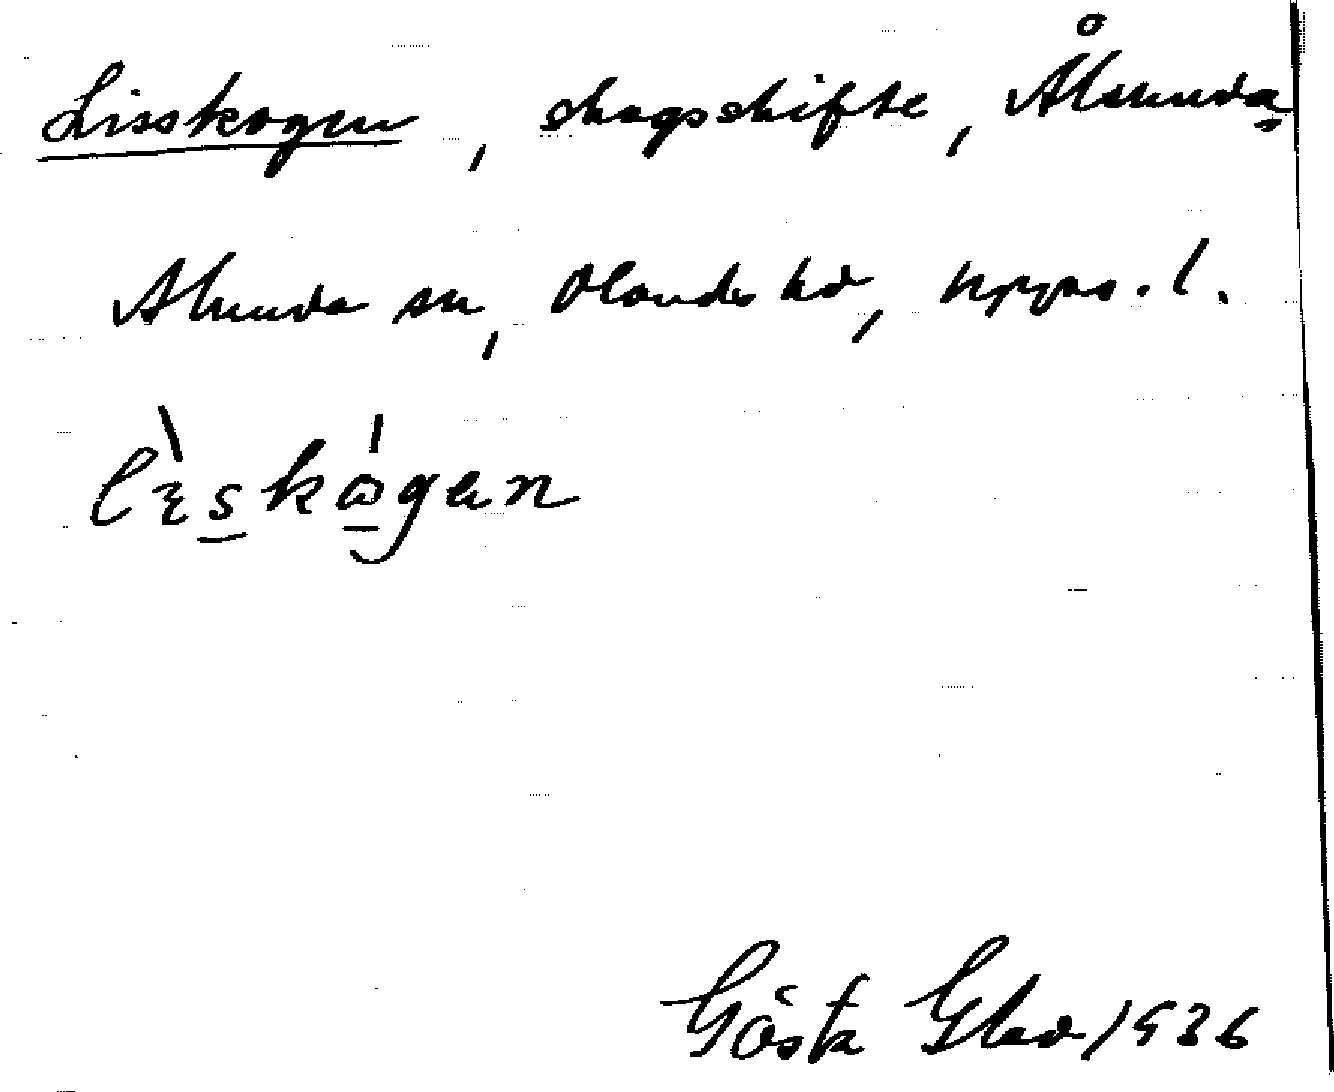 Lisskogen, skogsskifte, Ålsunda,
Alunda sn, Olands hd, Upps. l.
lèskógen
Gösta Glad 1936